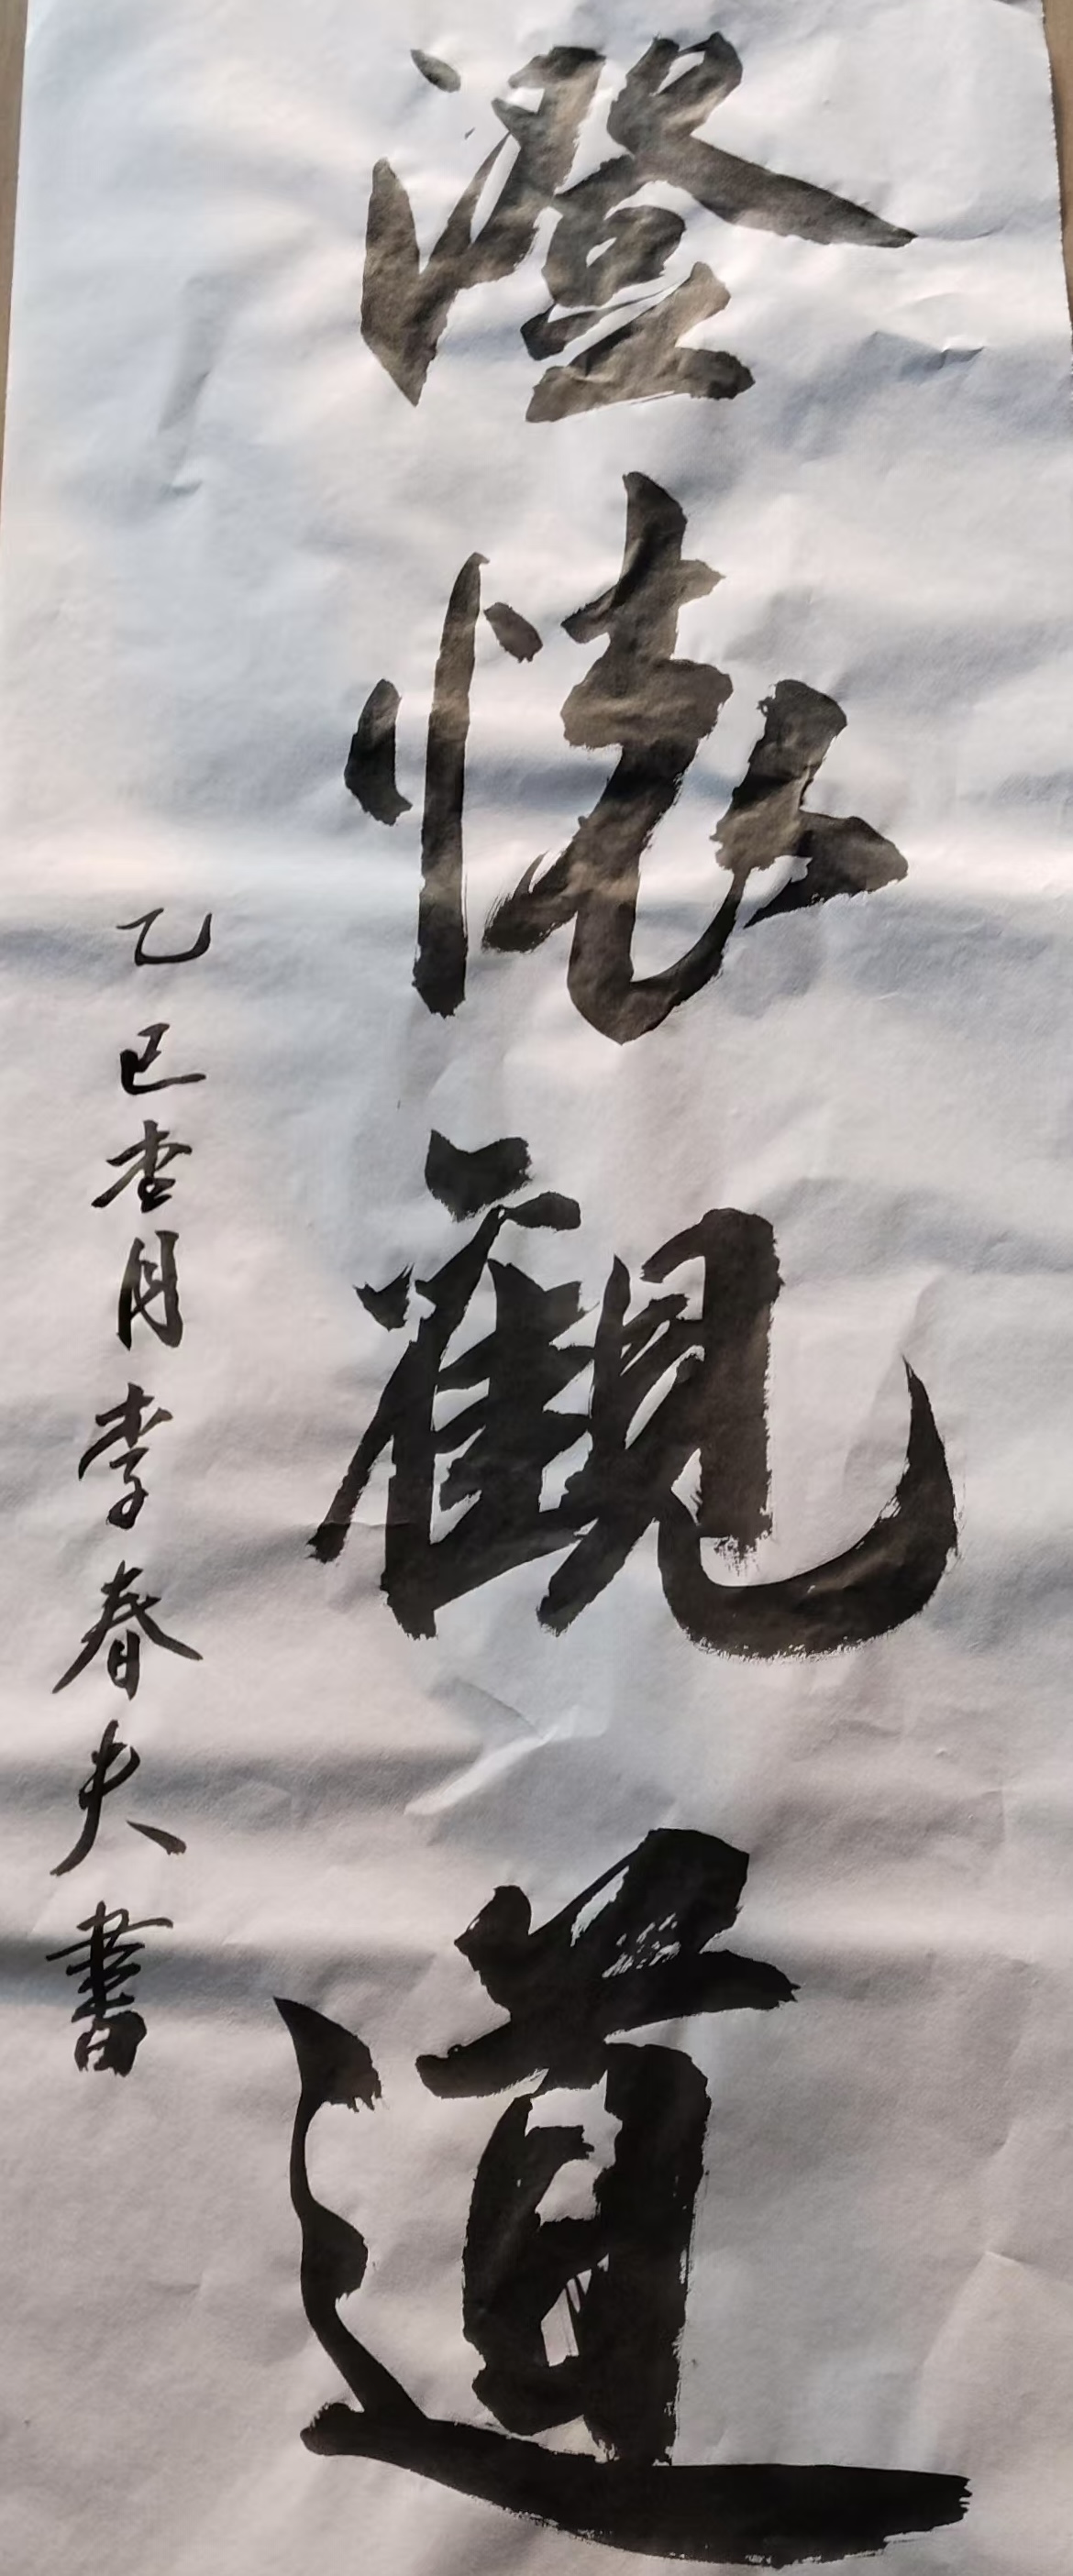 澄懷觀道
乙巳杏月李春夫書